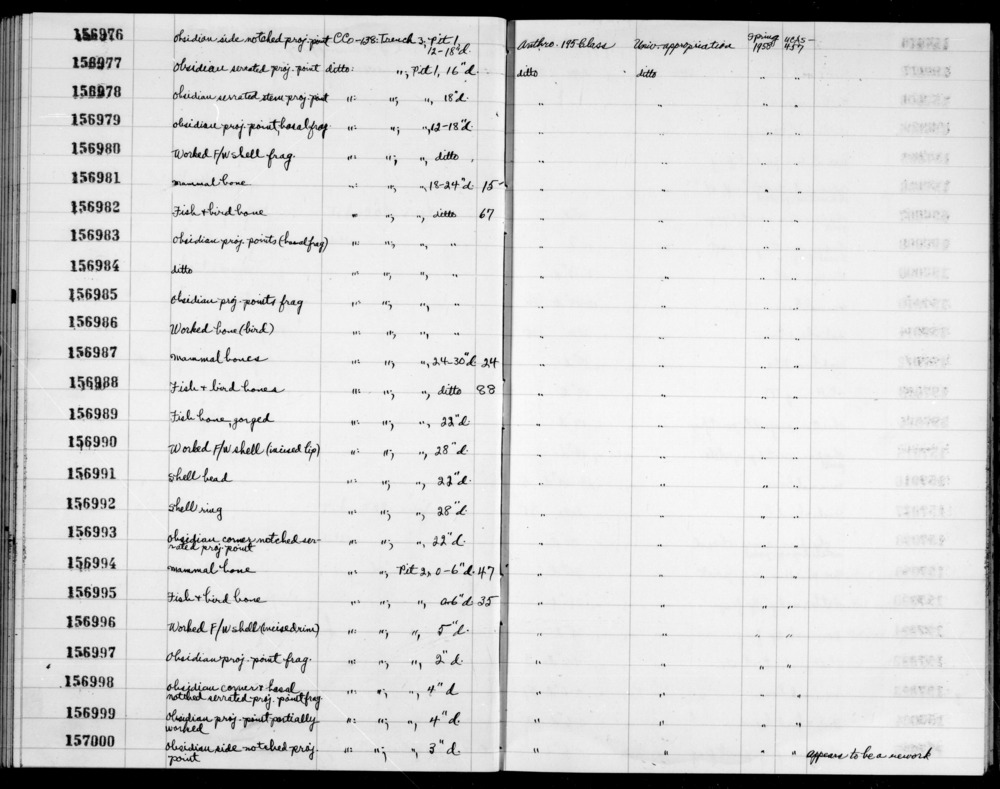 156976 obsidian side notched proj. point CCo-138: Trench 3, Pit 1, 12-18"d. Anthro. 195 Class Univ. appropriation Spring 1958 UCAS-437
156977 obsidian serrated proj. point ditto: "; Pit 1, 16"d. ditto ditto " "
156978 obsidian serrated stem proj. point ": "; ", 18"d. " " " "
156979 obsidian proj. point, basal frag ": "; ", 12-18"d. " " " "
156980 Worked F/W shell frag. ": "; ", ditto " " " "
156981 mammal bone ": "; ", 18-24"d. 15 " " " "
156982 Fish + bird bone " "; ", ditto 67 " " " "
156983 obsidian proj. points (basal frag) ": "; ", " " " " "
156984 ditto ": "; ", " " " " "
156985 obsidian proj. points frag ": "; ", " " " " "
156986 Worked bone (bird) ": "; ", " " " " "
156987 mammal bones ": "; ", 24-30"d. 24 " " " "
156988 Fish + bird bones ": "; ", ditto 88 " " " "
156989 Fish bone, gorged ": "; ", 22"d. " " " "
156990 Worked F/W shell (incised lip) ": "; ", 28"d. " " " "
156991 Shell bead ": "; ", 22"d. " " " "
156992 Shell ring ": "; ", 28"d. " " " "
156993 obsidian corner notched ser-
rated proj. point ": "; ", 22"d. " " " "
156994 mammal bone ": "; Pit 2, 0-6"d. 47 " " " "
156995 Fish + bird bone ": "; ", 0-6"d. 35 " " " "
156996 Worked F/W shell (incised rim) ": "; ", 5"d. " " " "
156997 Obsidian proj. point frag. ": "; ", 2"d. " " " "
156998 obsidian corner + basal
notched serrated proj. point frag. ": "; ", 4"d " " " "
156999 Obsidian proj. point partially
worked ": "; ", 4"d. " " " "
157000 obsidian side notched proj
point ": "; ", 3"d. " " " " appears to be a rework